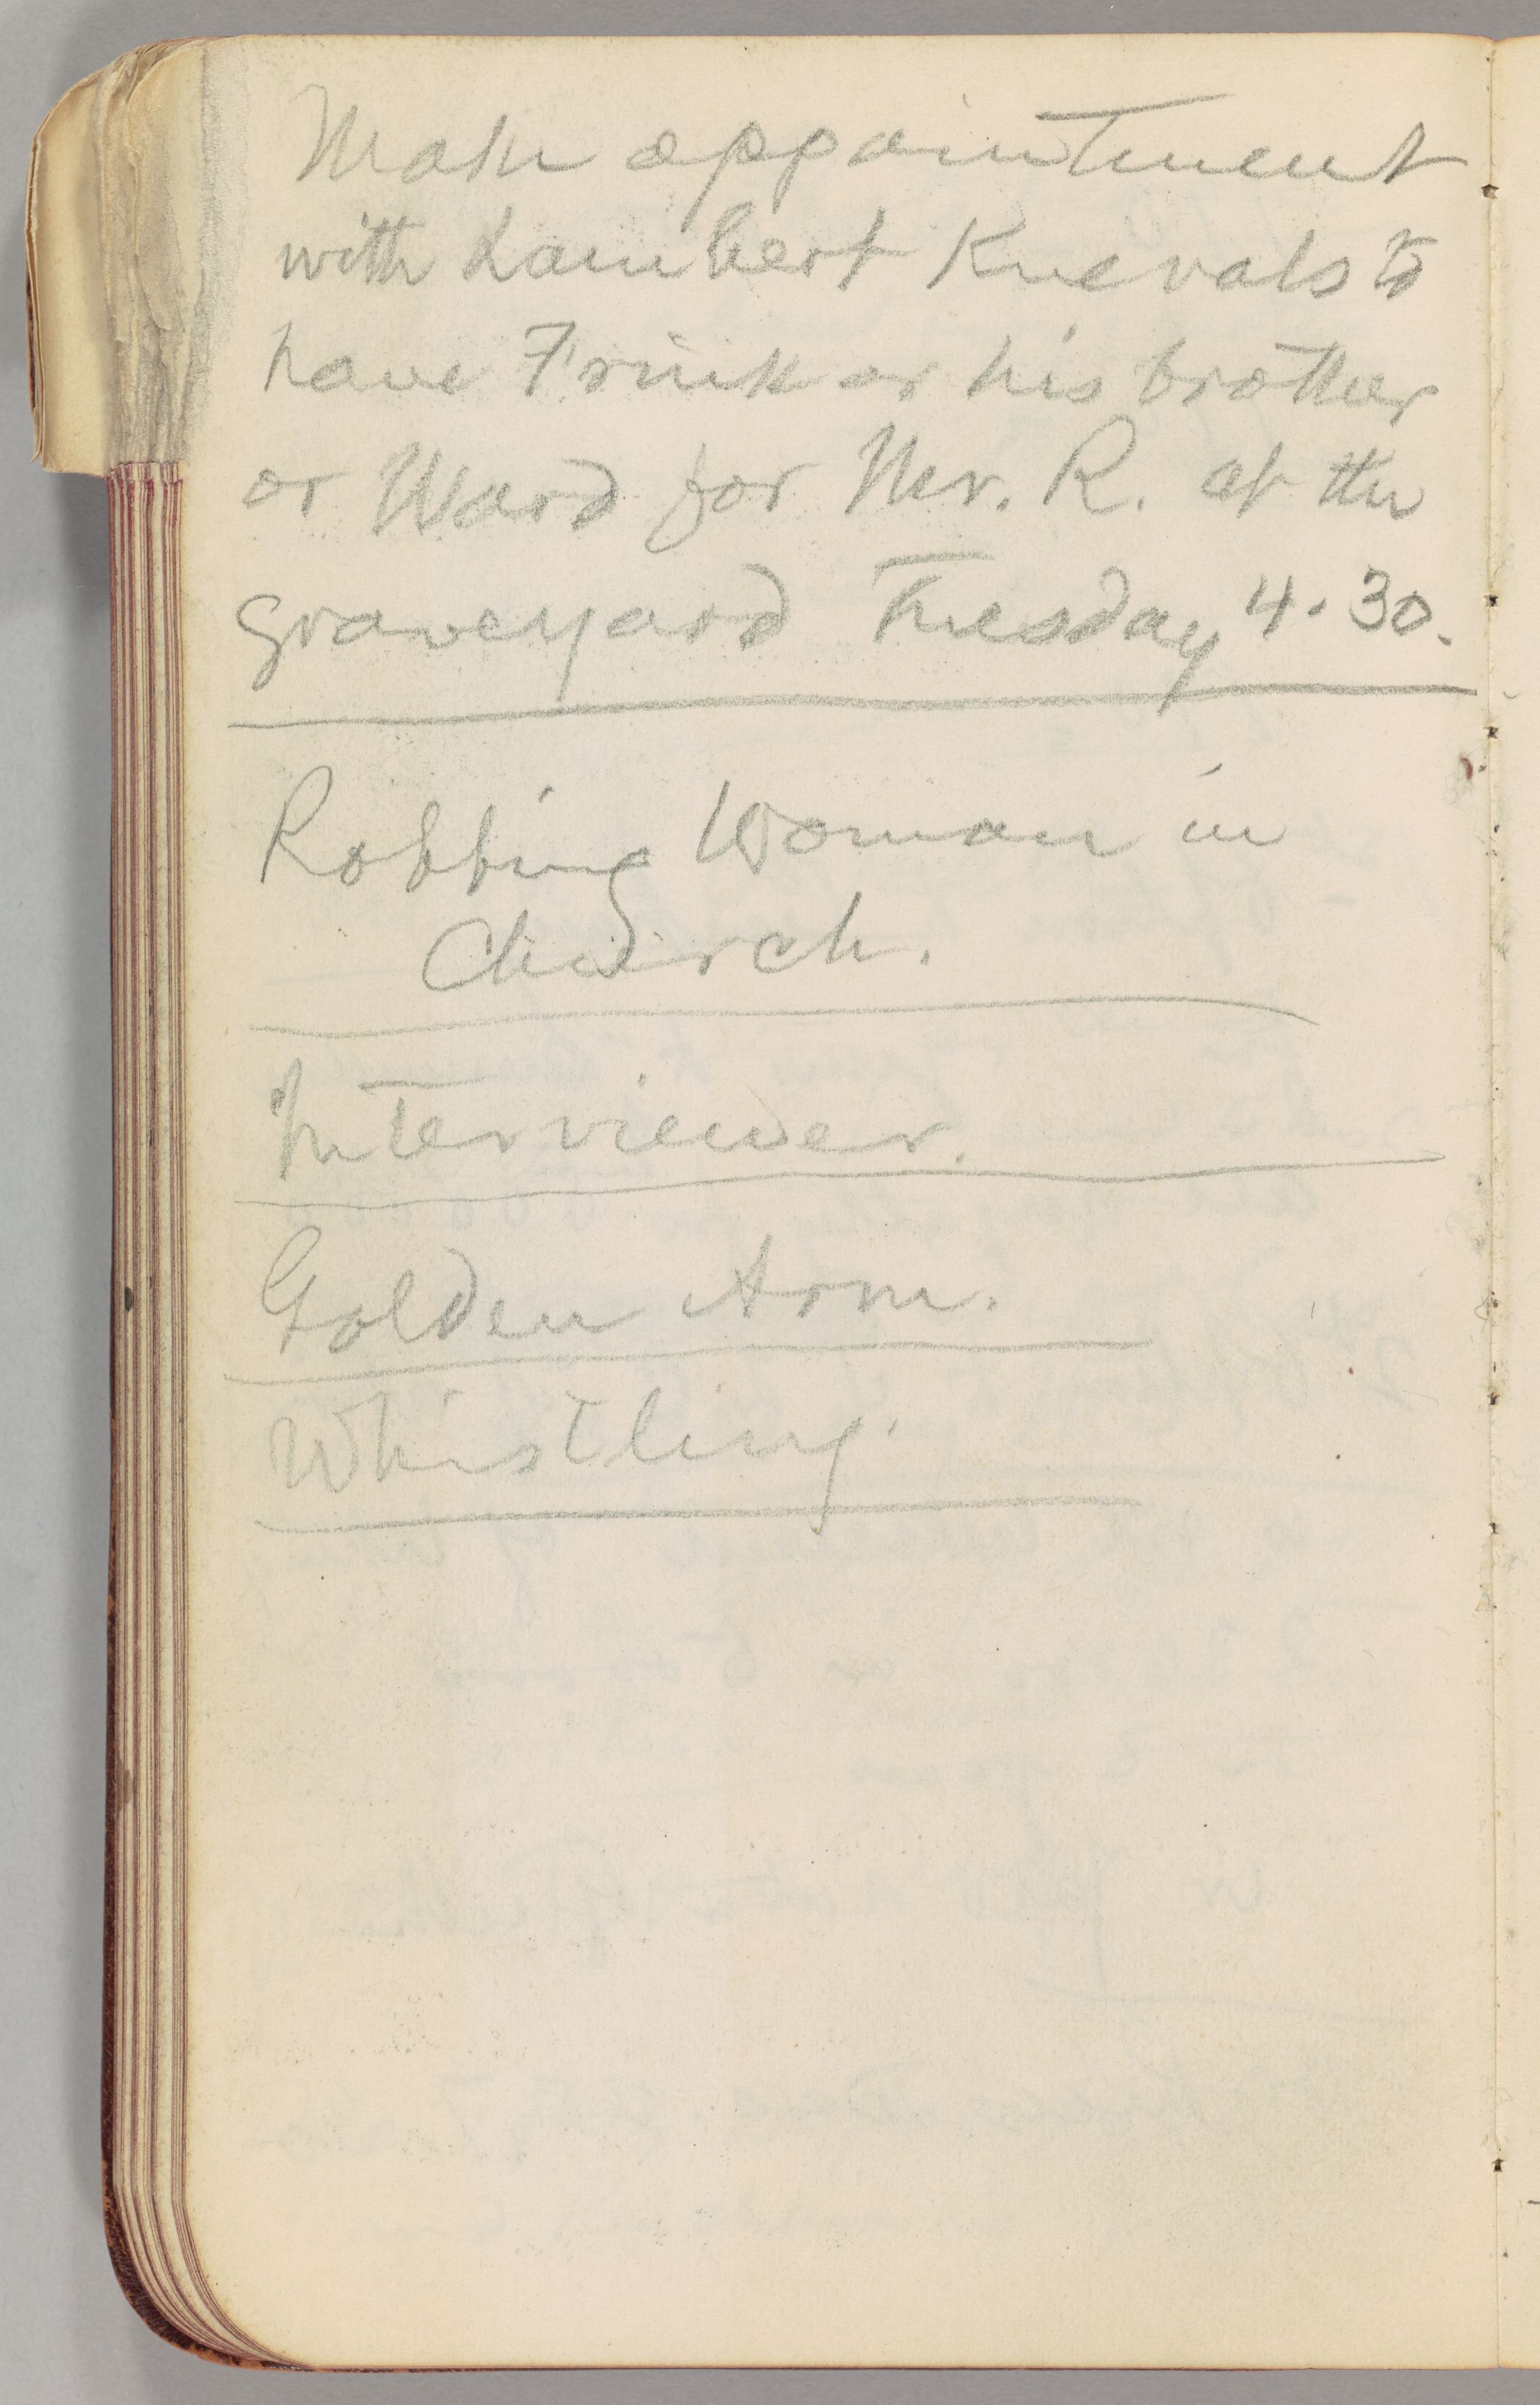 Make appointment
with Lambert Knevals to
have Frink or his brother
or Ward for Mr. R. at the
graveyard Tuesday 4.30.
Robbing Woman in
Church.
Interviewer.
Golden Arm.
Whistling.